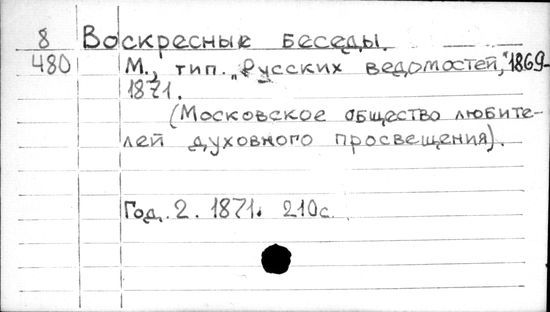 8 Воскресные беседы.
480 М., тип. "Русских ведомостей," 1869-
1871.
(Московское общество любите-
лей духовного просвещения).
Год. 2. 1871. 210с.